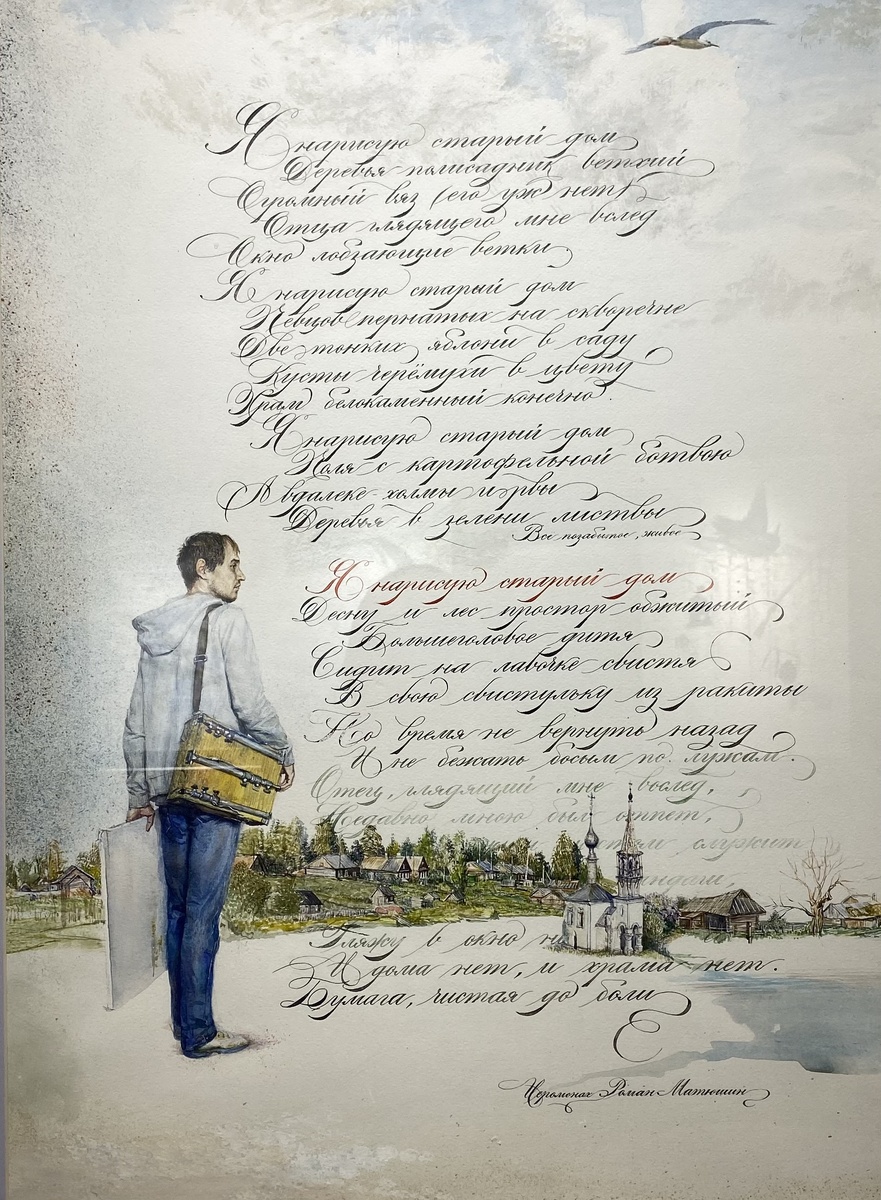 Я нарисую старый дом
Деревья полисадник ветхий
Огромный вяз (его уж нет)
Отца глядящего мне вслед
Окно лобзающие ветки
Я нарисую старый дом
Певцов пернатых на скворечне
Две тонких яблони в саду
Кусты черёмухи в цвету
Храм белокаменный конечно.
Я нарисую старый дом
Поля с картофельной ботвою
А вдалеке - холмы и рвы
Деревья в зелени листвы
Все позабытое, живое
Я нарисую старый дом
Десну и лес простор обжитый
Большеголовое дитя
Сидит на лавочке свистя
В свою свистульку из ракиты
Но время не вернуть назад
И не бежать босым по лужам.
Отец, глядящий мне вослед,
Недавно мною был отпет,
служит
Гляжу в окно
И дома нет, и храма нет.
Бумага, чистая до боли
Иеромонах Роман Матюшин